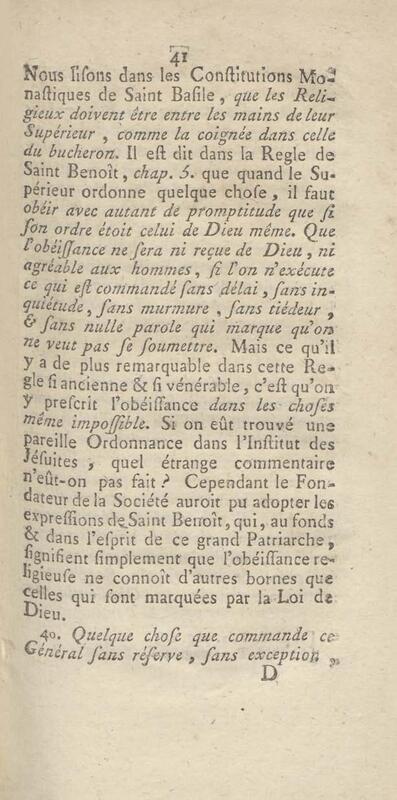 41
Nous lisons dans les Constitutions Mo-
nastiques de Saint Basile, que les Reli-
gieux doivent être entre les mains de leur
Supérieur, comme la coignée dans celle
du bucheron. Il est dit dans la Regle de
Saint Benoît, chap. 5. que quand le Su-
périeur ordonne quelque chose, il faut
obéir avec autant de promptitude que si
son ordre étoit celui de Dieu même. Que
l'obéissance ne sera ni reçue de Dieu, ni
agréable aux hommes, si l'on n'exécute
ce qui est commandé sans délai, sans in-
quiétude, sans murmure, sans tiédeur,
& sans nulle parole qui marque qu'on
ne veut pas se soumettre. Mais ce qu'il
y a de plus remarquable dans cette Re-
gle si ancienne & si vénérable, c'est qu'on
y prescrit l'obéissance dans les choses
même impossible. Si on eût trouvé une
pareille Ordonnance dans l'Institut des
Jésuites, quel étrange commentaire
n'eût-on pas fait ? Cependant le Fon-
dateur de la Société auroit pu adopter les
expressions de Saint Benoît, qui, au fonds
& dans l'esprit de ce grand Patriarche,
signifient simplement que l'obéissance re-
ligieuse ne connoît d'autres bornes que
celles qui sont marquées par la Loi de
Dieu.
40. Quelque chose que commande ce
Général sans réserve, sans exception,
D